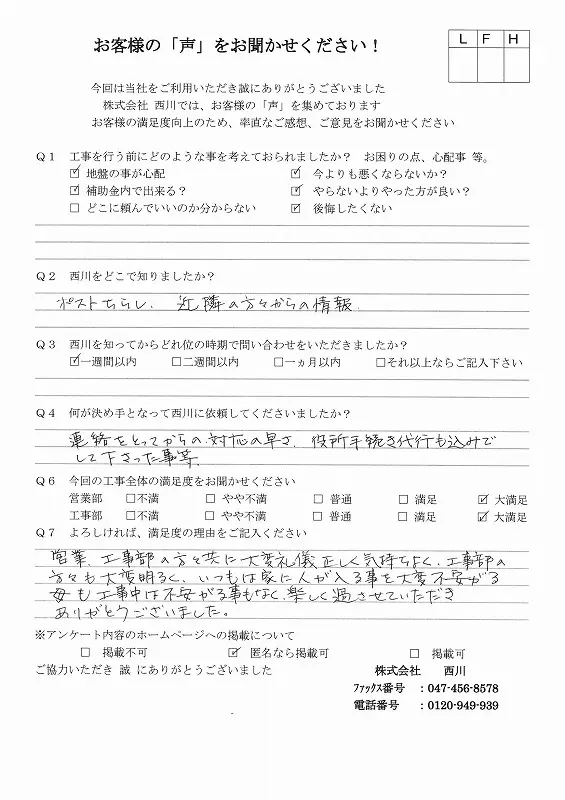 お客様の「声」をお聞かせください！
L F H
今回は当社をご利用いただき誠にありがとうございました
株式会社 西川では、お客様の「声」を集めております
お客様の満足度向上のため、率直なご感想、ご意見をお聞かせください
Q１ 工事を行う前にどのような事を考えておられましたか？ お困りの点、心配事 等。
☑ 地盤の事が心配 ☑ 今よりも悪くならないか？
☑ 補助金内で出来る？ ☑ やらないよりやった方が良い？
□ どこに頼んでいいのか分からない ☑ 後悔したくない
Q２ 西川をどこで知りましたか？
ポストちらし、近隣の方々からの情報
Q３ 西川を知ってからどれ位の時期で問い合わせをいただきましたか？
☑一週間以内 □二週間以内 □一ヵ月以内 □それ以上ならご記入下さい
Q４ 何が決め手となって西川に依頼してくださいましたか？
連絡をとってからの対応の早さ、役所手続き代行も込みで
して下さった事等、
Q６ 今回の工事全体の満足度をお聞かせください
営業部 □不満 □ やや不満 □ 普通 □ 満足 ☑ 大満足
工事部 □不満 □ やや不満 □ 普通 □ 満足 ☑ 大満足
Q７ よろしければ、満足度の理由をご記入ください
営業、工事部の方々共に大変礼儀正しく気持ちよく、工事部の
方々も大変明るく、いつもは家に人が入る事を大変不安がる
母も工事中は不安がる事もなく、楽しく過させていただき
ありがとうございました。
※アンケート内容のホームページへの掲載について
□ 掲載不可 ☑ 匿名なら掲載可 □ 掲載可
ご協力いただき 誠 にありがとうございました
株式会社 西川
ﾌｧｯｸｽ番号 ：047-456-8578
電話番号 ：0120-949-939